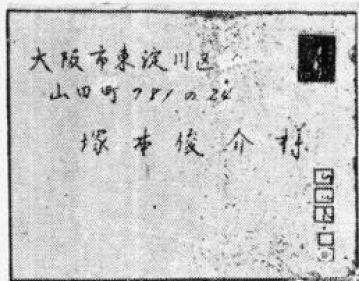 大阪市東淀川区
山田町781の24
塚本俊介様